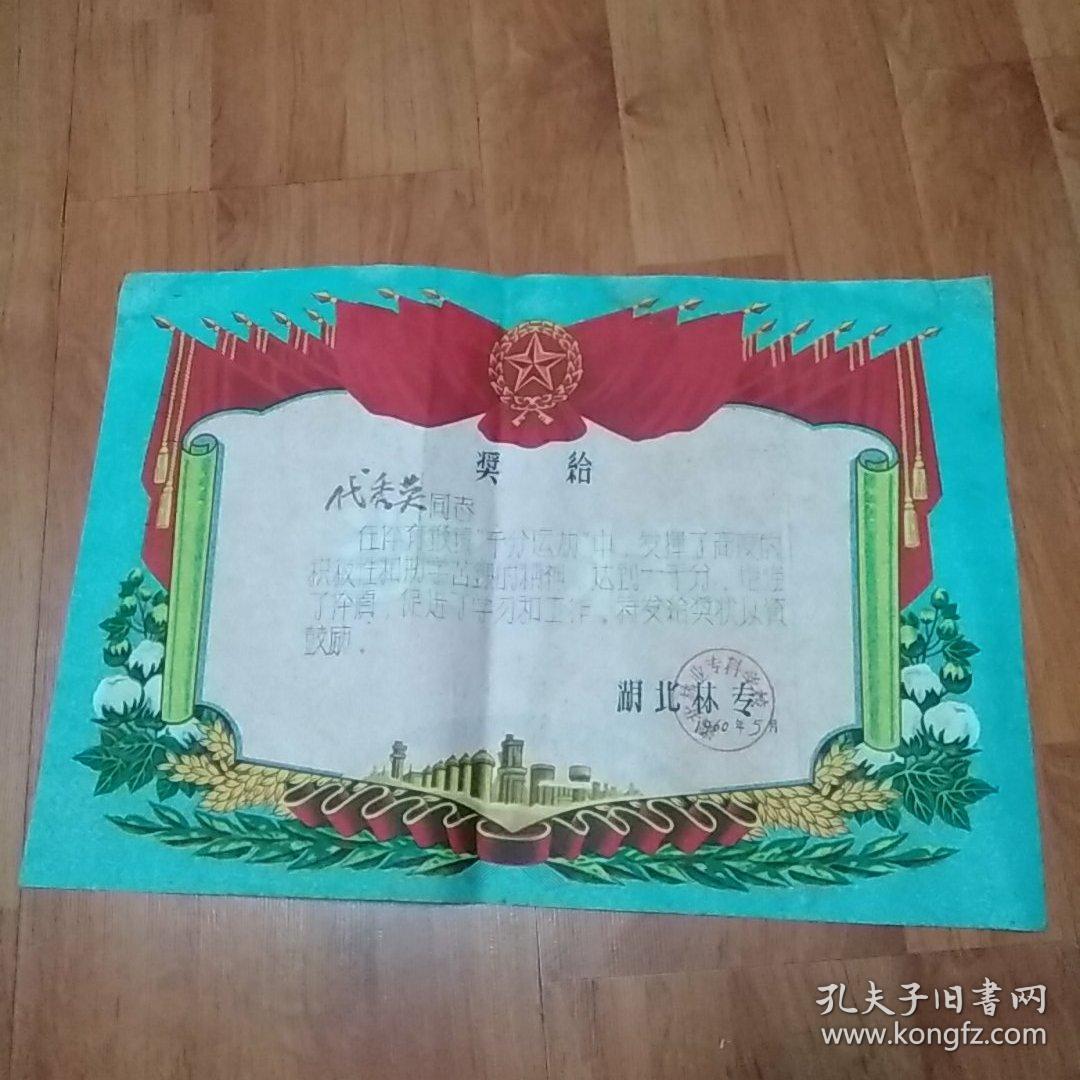 奖 给
代秀英同志
在体育锻炼“千分运动”中,发挥了高度的
积极性和勤学苦练的精神,达到一千分,增强
了体质,促进了学习和工作,特发给奖状以资
鼓励.
湖北林专
业专科学校
1960年5月
孔夫子旧書网
www.kongfz.com